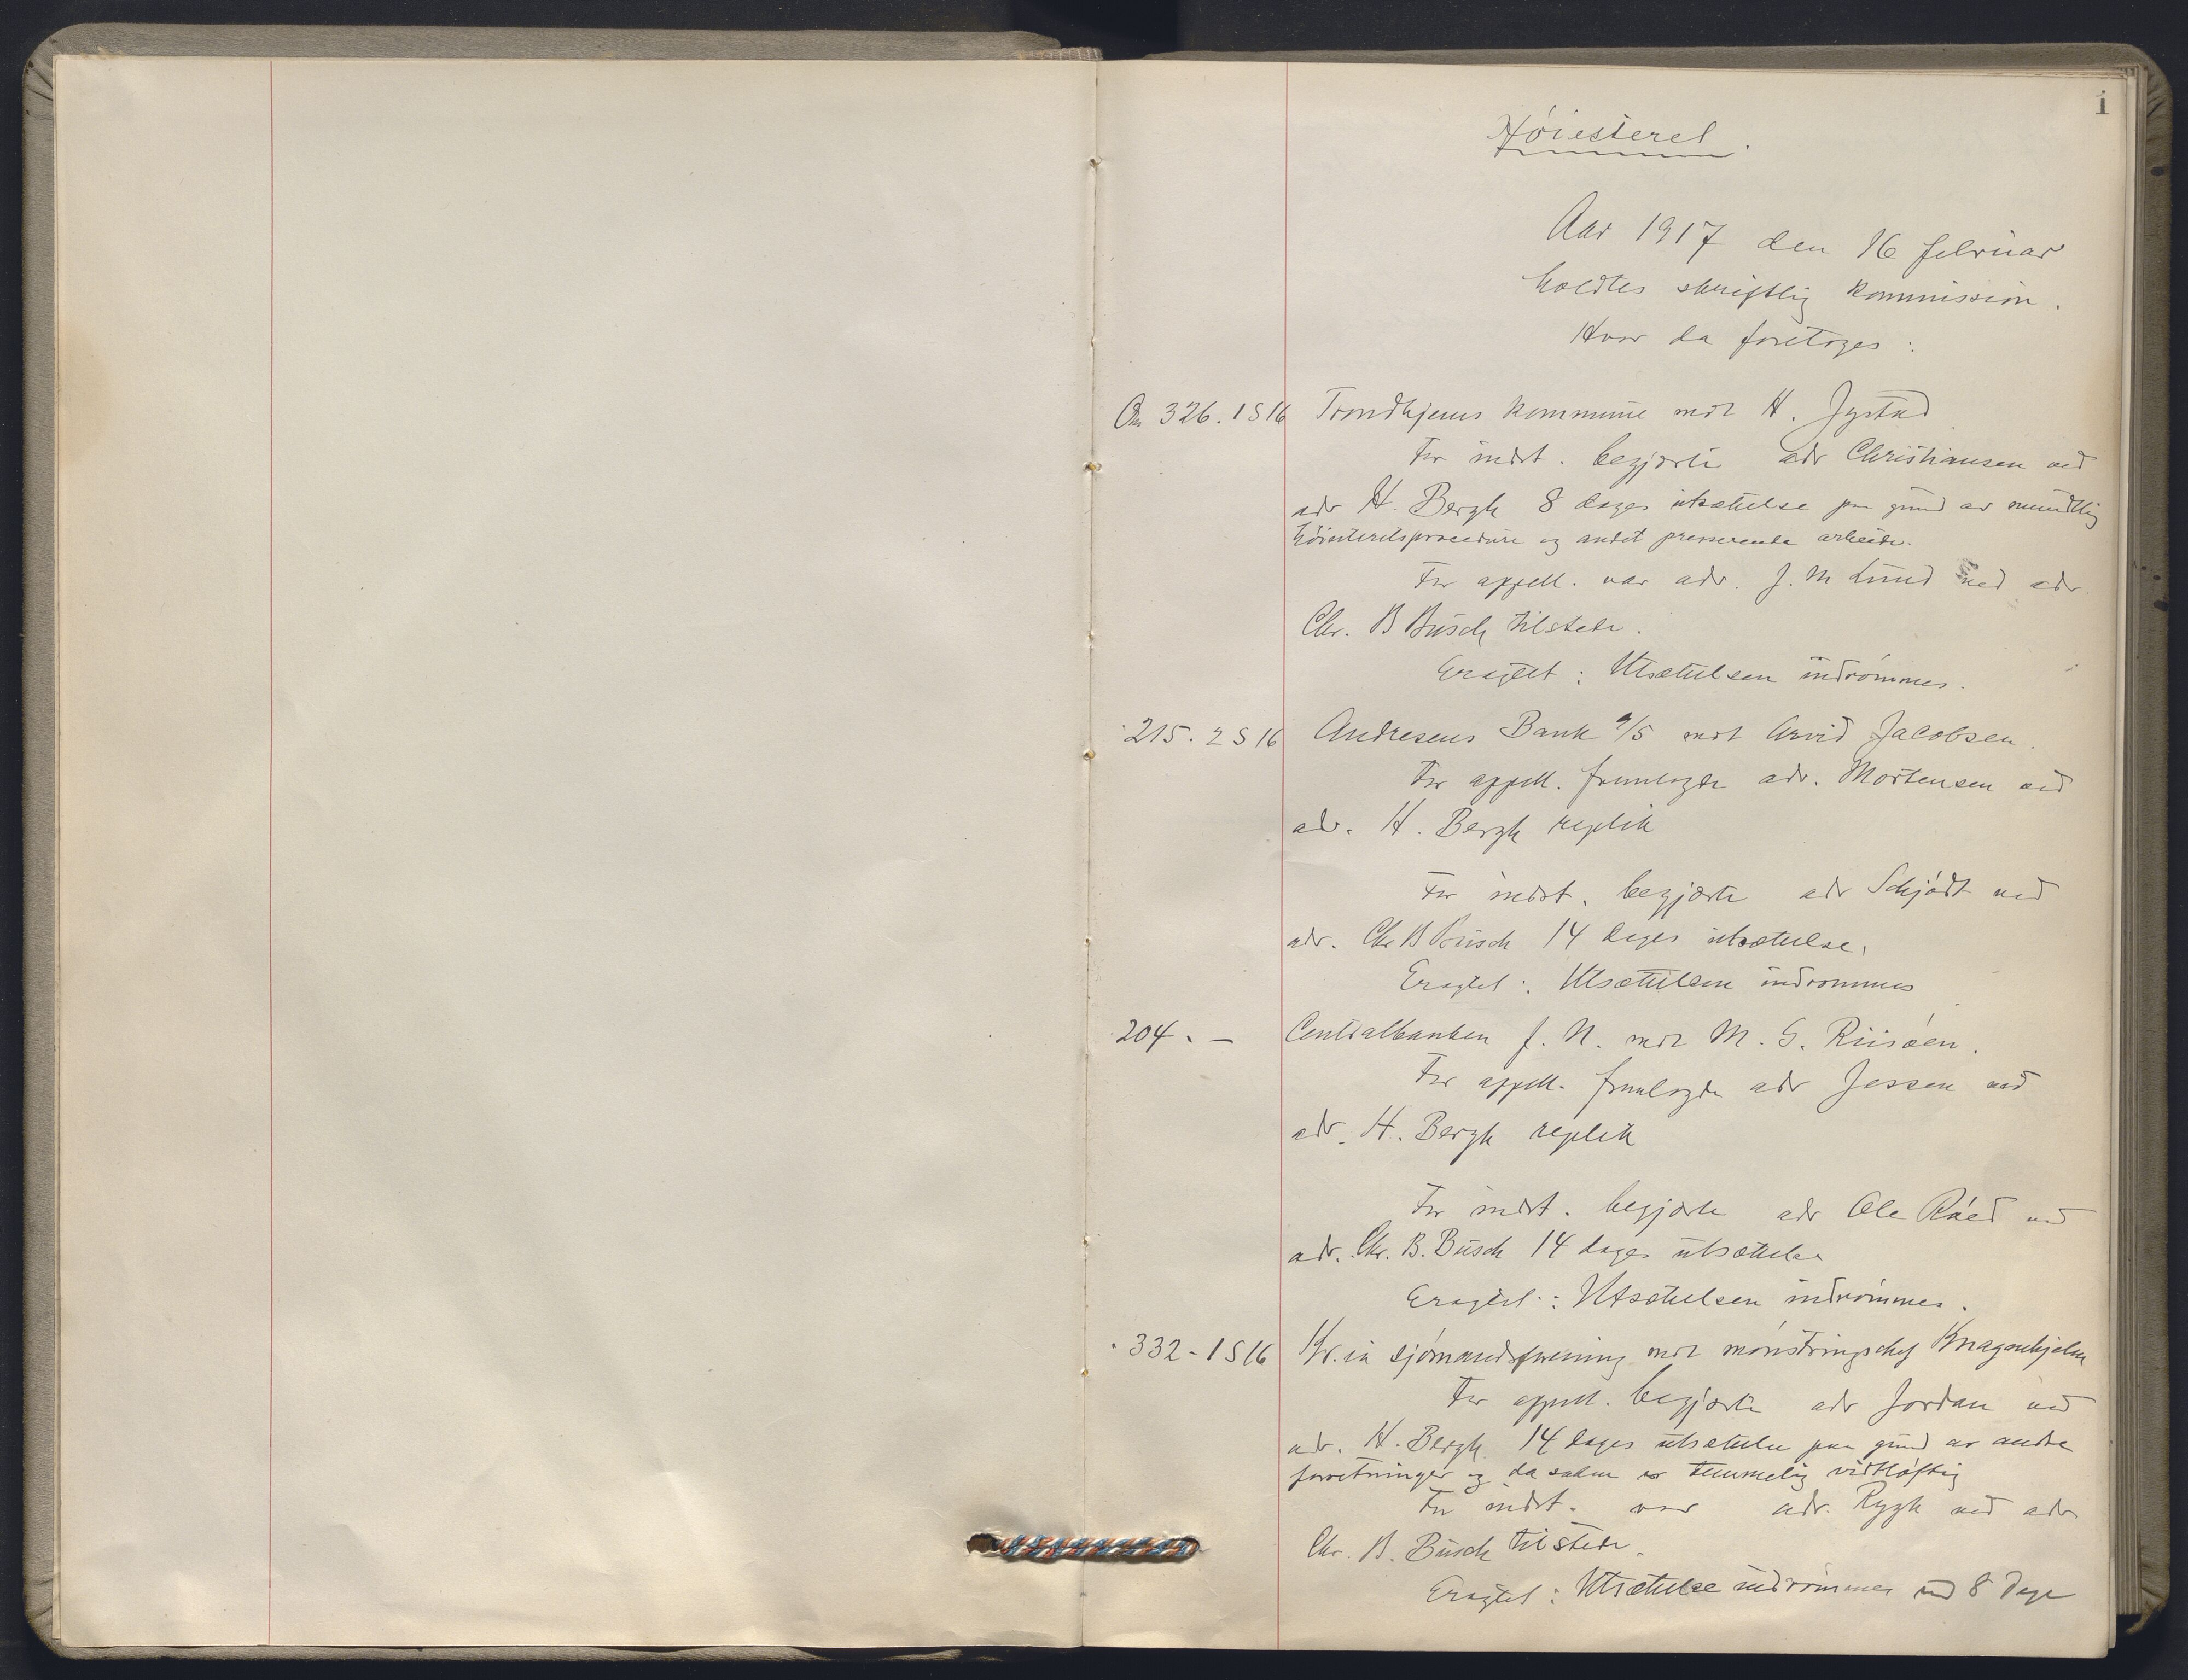 1
Høiesteret.
Aar 1917 den 16 februar
holdtes skriftlig kommission.
Hvor da foretoges:
326. 1 S 16 Trondhjems kommune mot H. Jystad
For indst. begjærte adv Christiansen ved
adv H. Bergh 8 dages utsættelse paa grund av mundtlig
høiesteretsprocedure og andet presserende arbeide.
For appell. var adv. J. M Lund ved adv.
Chr. B Busch tilstede.
Eragtet: Utsættelsen indrømmes.
215. 2 S 16 Andresens Bank a/s mot Arvid Jacobsen.
For appell. fremlagde adv. Mortensen ved
adv. H. Bergh replik
For indst. begjærte adv Schjødt ved
adv. Chr B Busch 14 dages utsættelse.
Eragtet: Utsættelsen indrømmes
204. — Centralbanken f. N. mot M. G. Riisøen.
For appell. fremlagde adv Jessen ved
adv. H. Bergh replik
For indst. begjærte adv Ole Røed ved
adv. Chr. B. Busch 14 dages utsættelse
Eragtet: Utsættelsen indrømmes.
332 - 1 S 16 Kr.ia sjømandsforening mot mønstringschef Knagenhjelm
For appell. begjærte adv Jordan ved
adv. H. Bergh 14 dages utsættelse paa grund av andre
forretninger og da saken er temmelig vidtløftig
For indst. var adv. Rygh ved adv
Chr. B. Busch tilstede.
Eragtet: Utsættelse indrømmes ved 8 dage